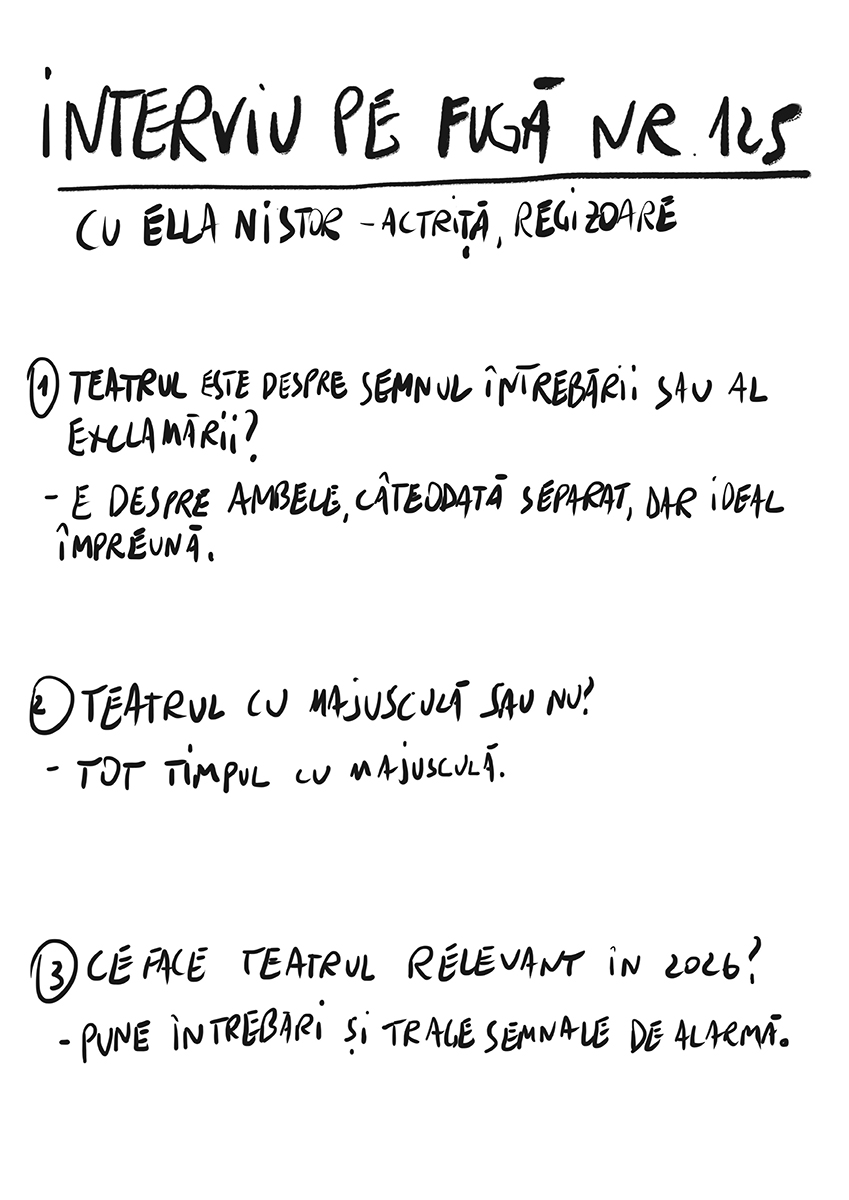 INTERVIU PE FUGĂ NR. 125
CU ELLA NISTOR - ACTRIȚĂ, REGIZOARE
1 TEATRUL ESTE DESPRE SEMNUL ÎNTREBĂRII SAU AL
EXCLAMĂRII?
- E DESPRE AMBELE, CÂTEODATĂ SEPARAT, DAR IDEAL
ÎMPREUNĂ.
2 TEATRUL CU MAJUSCULĂ SAU NU?
- TOT TIMPUL CU MAJUSCULĂ.
3 CE FACE TEATRUL RELEVANT ÎN 2026?
- PUNE ÎNTREBĂRI ȘI TRAGE SEMNALE DE ALARMĂ.